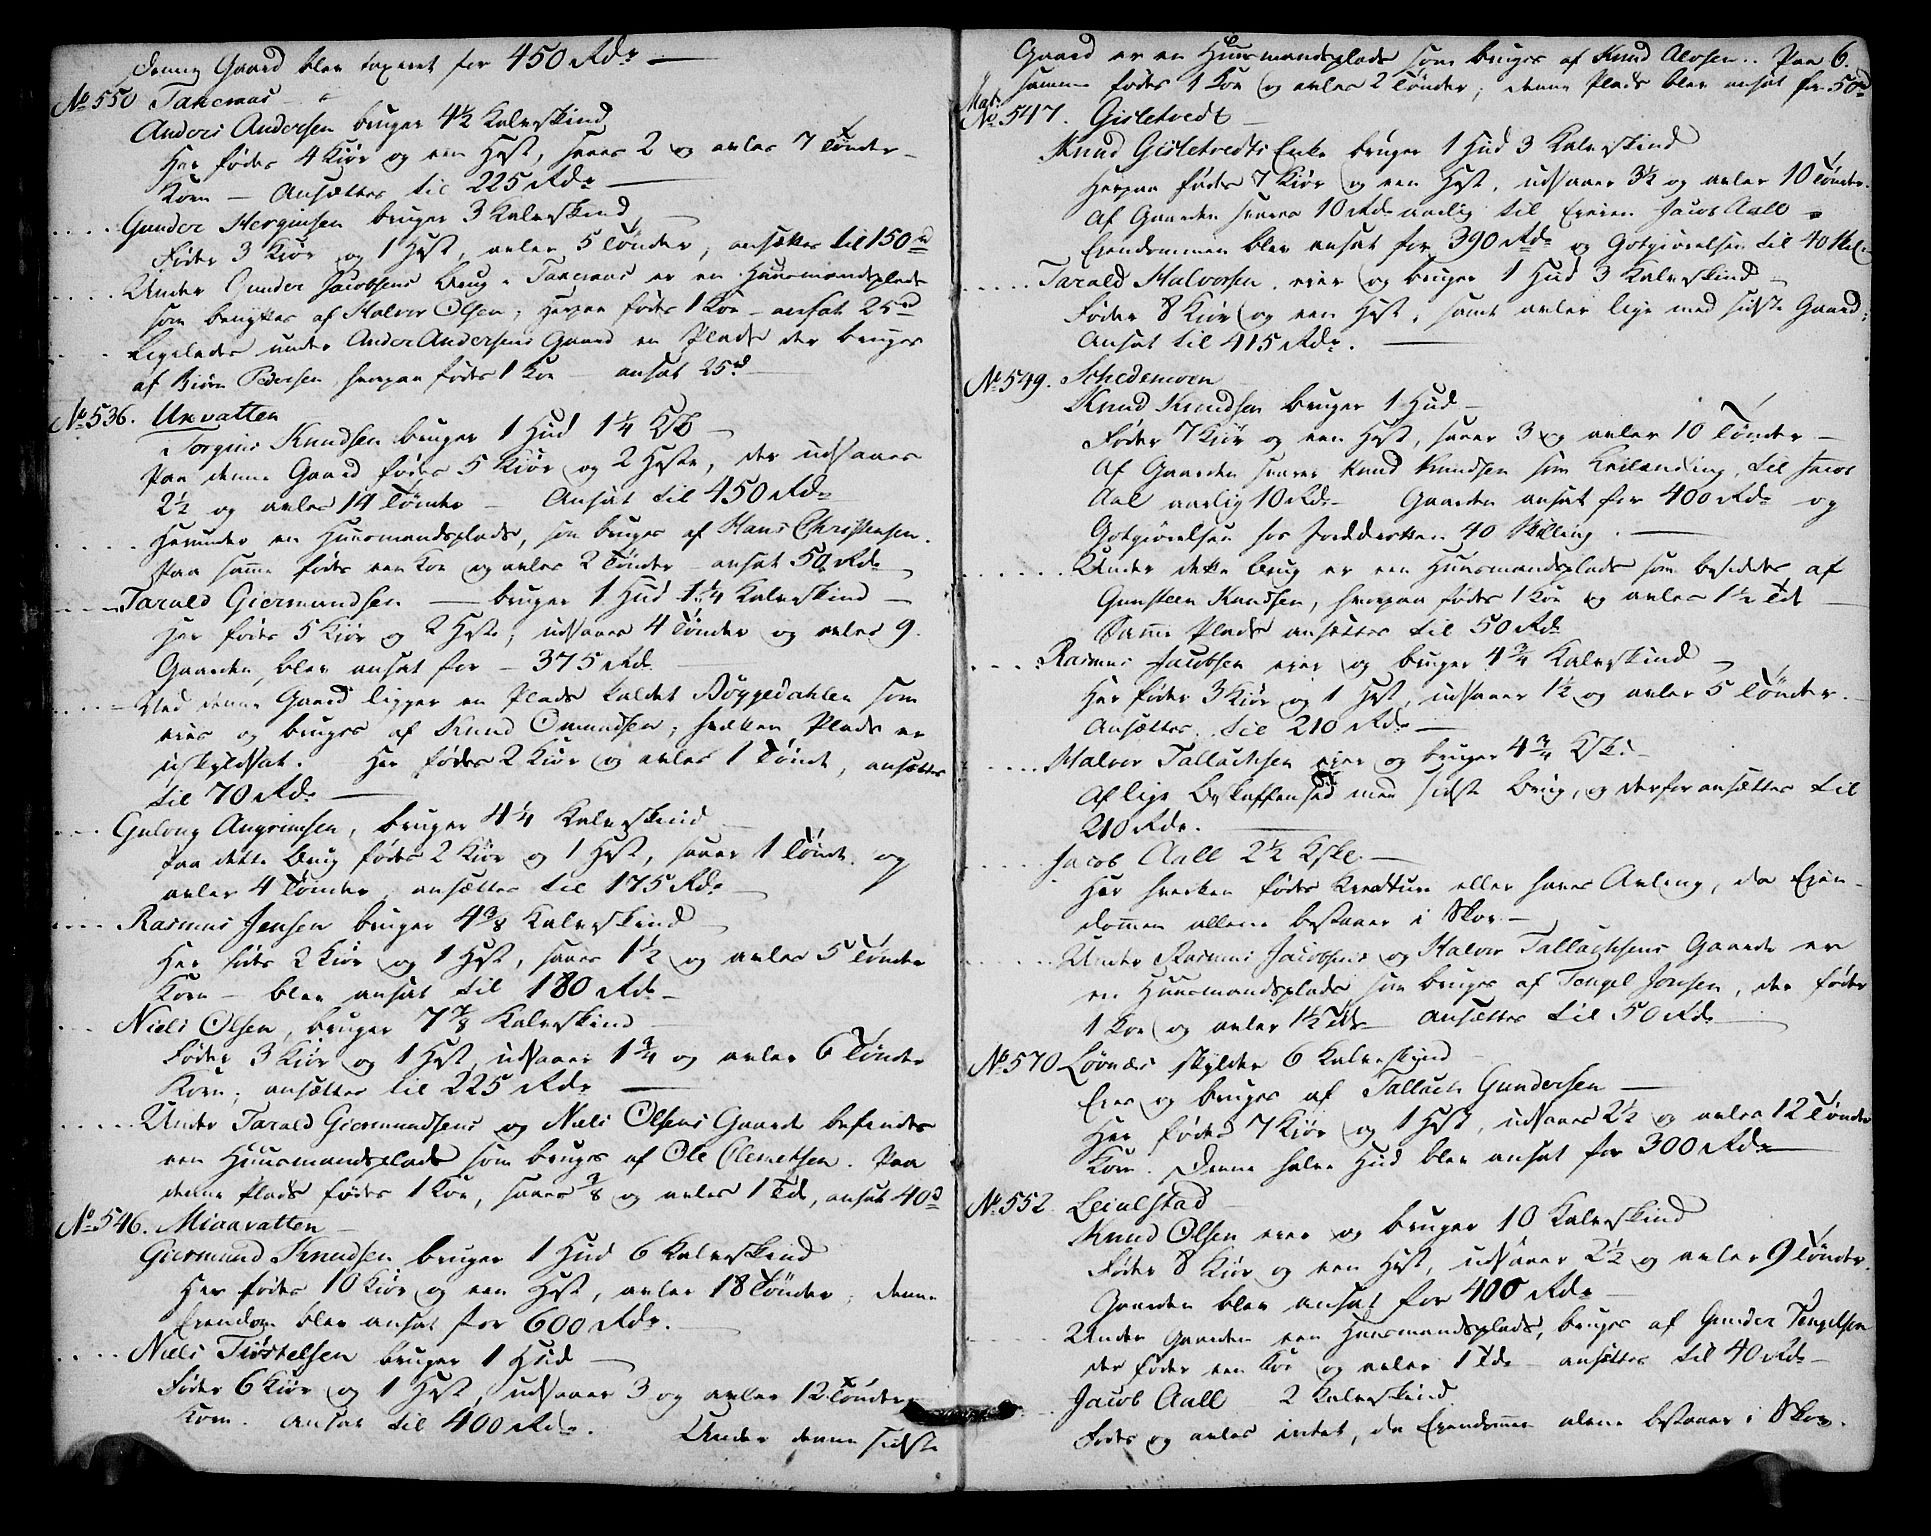 Denne Gaard blev taxeret for 450 Rdr
No 550 Taxeraas
Anders Andersen bruger 4½ Kalvskind
Her fødes 4 Kiör og een Hest, saaes 2 og avles 7 Tönder
Korn — Ansættes til 225 Rdr
Gunder Tergiusen bruger 3 Kalvskind
Föder 3 Kiör og 1 Hest, avler 5 Tönder, ansættes til 150 rd
Under Gunder Jacobsens Brug Taxeraas er en Huusmandsplads
som benyttes af Halvor Olsen, herpaa födes 1 Koe - ansat 25 rd
Ligeledes under Anders Andersens Gaard en Plads der bruges
af Biörn Pedersen, hvorpaa födes 1 Koe — ansat 25 rd
No 536. Uxvatten
Torgius Knudsen bruger 1 Hud 1¼ Ksk
Paa denne Gaard födes 5 Kiör og 2 Heste, der udsaaes
2½ og avles 14 Tönder — Ansat til 450 Rdr
Herunder en Huusmandsplads, som bruges af Hans Christensen.
Paa samme födes een Koe og avles 2 Tönder — ansat 50 Rdr
Tarald Giermundsen — bruger 1 Hud 1¼ Kalvskind —
Her födes 5 Kiör og 2 Heste, udsaaes 4 Tönder og avles 9.
Gaarden blev ansat for — 375 Rdr.
Ved denne Gaard ligger en Plads kaldet Böygedahlen som
eies og bruges af Knud Omundsen, hvilken Plads er
uskyldsat. Her födes 2 Kiör og avles 1 Tönde, ansættes
til 70 Rdr
Gulong Angrimsen, bruger 4¼ Kalvskind
Paa dette Brug födes 2 Kiör og 1 Hest, saaes 1 Tönde og
avles 4 Tönder, ansættes til 175 Rdr
Rasmus Jensen bruger 4⅜ Kalvskind
Her födes 2 Kiör og 1 Hest, saaes 1½ og avles 5 Tönder
Korn — blev ansat til 180 Rdr
Niels Olsen, bruger 7⅞ Kalvskind
Föder 3 Kiör og 1 Hest, udsaaer 1¾ og avler 6 Tönder
Korn; ansættes til 225 Rdr
Under Tarald Giermundsens og Niels Olsens Gaarde befindes
een Huusmandsplads som bruges af Ole Clemetsen. Paa
denne Plads födes 1 Koe, saaes ⅜ og avles 1 Td, ansat 40 rd
No 546. Miaavatten
Giermund Knudsen bruger 1 Hud 6 Kalvskind
Her födes 10 Kiör og een Hest, avles 18 Tönder, denne
Eiendom blev ansat for 600 Rdr.
Niels Tiöstelsen bruger 1 Hud
Föder 6 Kiör og 1 Hest, udsaaer 3 og avler 12 Tönder
Korn. Ansat til 400 Rdr.
Under denne sidste
Gaard er en Huusmandsplads som bruges af Knud Alvsen. Paa 6.
samme födes 1 Koe og avles 2 Tönder, denne Plads blev ansat for 50 rd
Mat:
No 547. Gisletvedt
Knud Gisletvedts Enke bruger 1 Hud 3 Kalvskind
Herpaa födes 7 Kiör og een Hest, udsaaer 3½ og avler 10 Tönder.
Af Gaarden svares 10 Rdr aarlig til Eieren Jacob Aall
Eiendommen blev ansat for 390 Rdr og Gotgiörelsen til 40 skil:
Tarald Halvorsen, eier og bruger 1 Hud 3 Kalvskind
Föder 8 Kiör og een Hest, samt avler lige med sidste Gaard;
Ansat til 415 Rdr.
No 549. Schedemoen
Knud Knudsen bruger 1 Hud
Föder 7 Kiör og een Hest, saaer 3 og avler 10 Tönder
Af Gaarden svarer Knud Knudsen som Leilending, til Jacob
Aal aarlig 10 Rdr — Gaarden ansat for 400 Rdr og
Gotgiörelsen for Jorddrotten 40 Skilling.
Under dette Brug er een Huusmandsplads som besiddes af
Gunsteen Knudsen, hvorpaa födes 1 Koe og avles 1½ Td
Samme Plads ansættes til 50 Rdr
Rasmus Jacobsen eier og bruger 4¾ Kalvskind
Her föder 3 Kiör og 1 Hest, udsaaer 1½ og avler 5 Tönder.
Ansættes til 210 Rdr
Halvor Tallachsen eier og bruger 4¾ Ksk:
Af lige Beskaffenhed med sidste Brug, og derfor ansættes til
210 Rdr.
Jacob Aall 2½ Kskd.
Her hverken födes Kreature eller haves Avling, da Eien-
dommen allene bestaaer i Skov.
Under Rasmus Jacobsens og Halvor Tallachsens Gaarde er
en Huusmandsplads som bruges af Tengel Jonsen, der föder
1 Koe og avler 1½ Tdr — ansættes til 50 Rdr
No 570 Lövnæs skylder 6 Kalveskind
Eies og bruges af Tallach Gundersen
Her födes 7 Kiör og 1 Hest, udsaaes 2½ og avles 12 Tönder
Korn. Denne halve Hud blev ansat for 300 Rdr
No 552 Leiulstad
Knud Olsen eier og bruger 10 Kalvskind
Föder 8 Kiör og een Hest, udsaaer 2½ og avler 9 Tönder.
Gaarden blev ansat for 400 Rdr
Under Gaarden een Huusmandsplads, bruges af Gunder Tengelsen
der föder een Koe og avler 1 Tde — ansættes til 40 Rdr
Jacob Aall 2 Kalvskind
Födes og avles intet, da Eiendommen alene bestaaer i Skov.